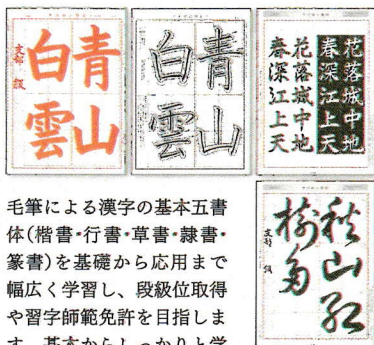 青山
白雲
支部 級
青山
白雲
花落城中地
春深江上天
花落城中地
春深江上天
秋山紅
樹多
支部 級
毛筆による漢字の基本五書
体(楷書・行書・草書・隷書・
篆書)を基礎から応用まで
幅広く学習し、段級位取得
や習字師範免許を目指しま
す。基本からしっかりと学